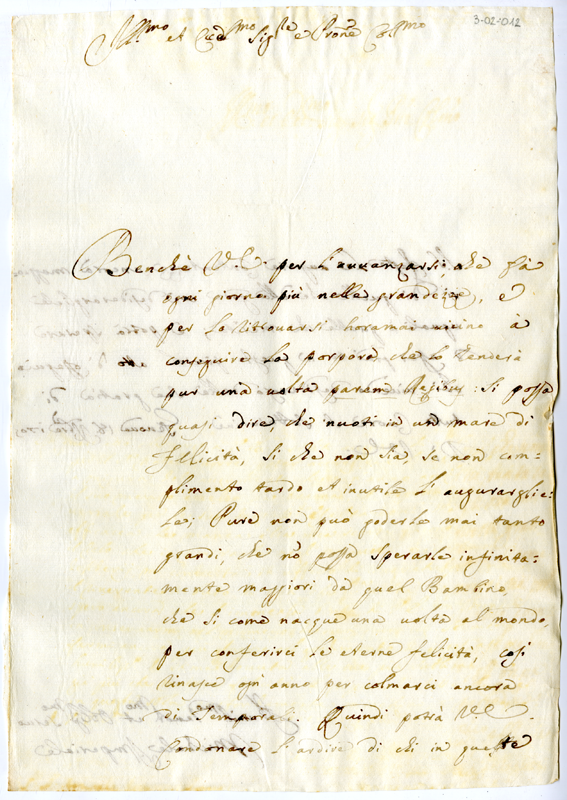 3-02-012
Ill.mo et Ecc.mo Sig.re e Prone Col.mo
Benchè V.E. per l'avvanzarsi che fà
ogni giorno più nelle grandezze, e
per la ritrovarsi horamai vicino à
conseguire la porpora che lo renderà
pur una volta parem Regibus: si possa
quasi dire, che nuoti in un mare di
felicità, si che non sia, se non com-
plimento tardo et inutile l'augurarglie-
le; Pure non può goderle mai tanto
grandi, che nõ possa sperarle infinita-
mente maggiori da quel Bambino,
che si come nacque una volta al mondo,
per conferirci le eterne felicità, così
rinasce ogn'anno per colmarci ancora
di temporali. Quindi potrà V.E.
condonare l'ardire di chi in queste